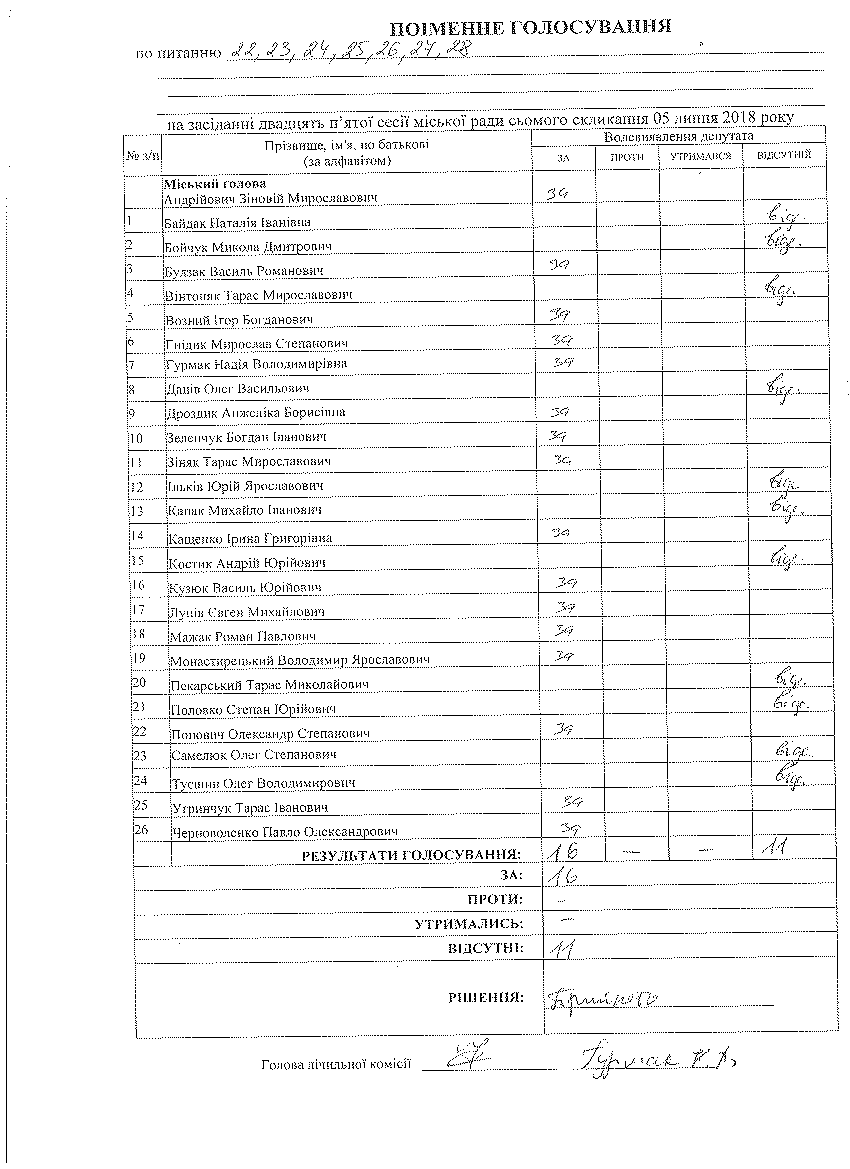 ПОІМЕННЕ ГОЛОСУВАННЯ
по питанню 22, 23, 24, 25, 26, 27, 28
на засіданні двадцять п'ятої сесії міської ради сьомого скликання 05 липня 2018 року
№ з/п Прізвище, ім'я, по батькові (за алфавітом) Волевиявлення депутата
ЗА ПРОТИ УТРИМАВСЯ ВІДСУТНІЙ
Міський голова
Андрійович Зіновій Мирославович за
1 Байдак Наталія Іванівна відс.
2 Бойчук Микола Дмитрович відс.
3 Будзак Василь Романович за
4 Вінтоняк Тарас Мирославович відс.
5 Возний Ігор Богданович за
6 Гнідик Мирослав Степанович за
7 Гурмак Надія Володимирівна за
8 Данів Олег Васильович відс.
9 Дроздик Анжеліка Борисівна за
10 Зеленчук Богдан Іванович за
11 Зіняк Тарас Мирославович за
12 Ільків Юрій Ярославович відс.
13 Капак Михайло Іванович відс.
14 Кащенко Ірина Григорівна за
15 Костик Андрій Юрійович відс.
16 Кузюк Василь Юрійович за
17 Лунів Євген Михайлович за
18 Мажак Роман Павлович за
19 Монастирецький Володимир Ярославович за
20 Пекарський Тарас Миколайович відс.
21 Половко Степан Юрійович відс.
22 Попович Олександр Степанович за
23 Самелюк Олег Степанович відс.
24 Тусним Олег Володимирович відс.
25 Угринчук Тарас Іванович за
26 Черноволенко Павло Олександрович за
РЕЗУЛЬТАТИ ГОЛОСУВАННЯ: 16 — — 11
ЗА: 16
ПРОТИ: –
УТРИМАЛИСЬ: –
ВІДСУТНІ: 11
РІШЕННЯ: Прийнято
Голова лічильної комісії Гурмак Н.В.